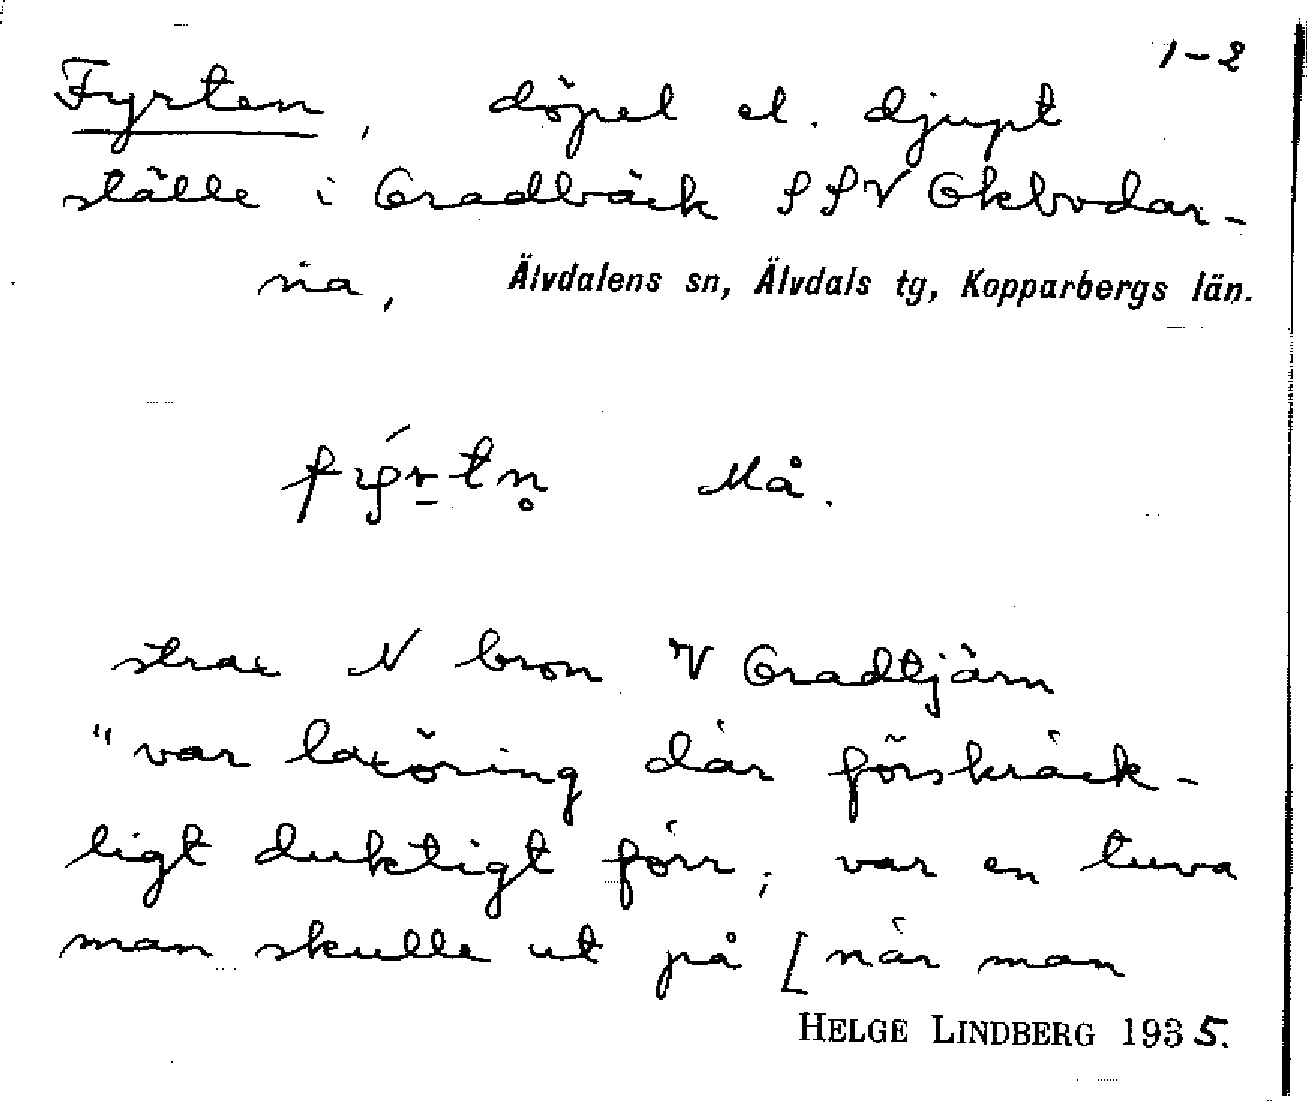 1-2
Fyrten, döpel el. djupt
ställe i Gradbäck SSV Okbodar-
na, Älvdalens sn, Älvdals tg, Kopparbergs län.
fy̕rtn̥ Må.
strax N bron V Gradtjärn
"var laxöring där förskräck-
ligt duktigt förr; var en tuva
man skulle ut på [när man
HELGE LINDBERG 1935.